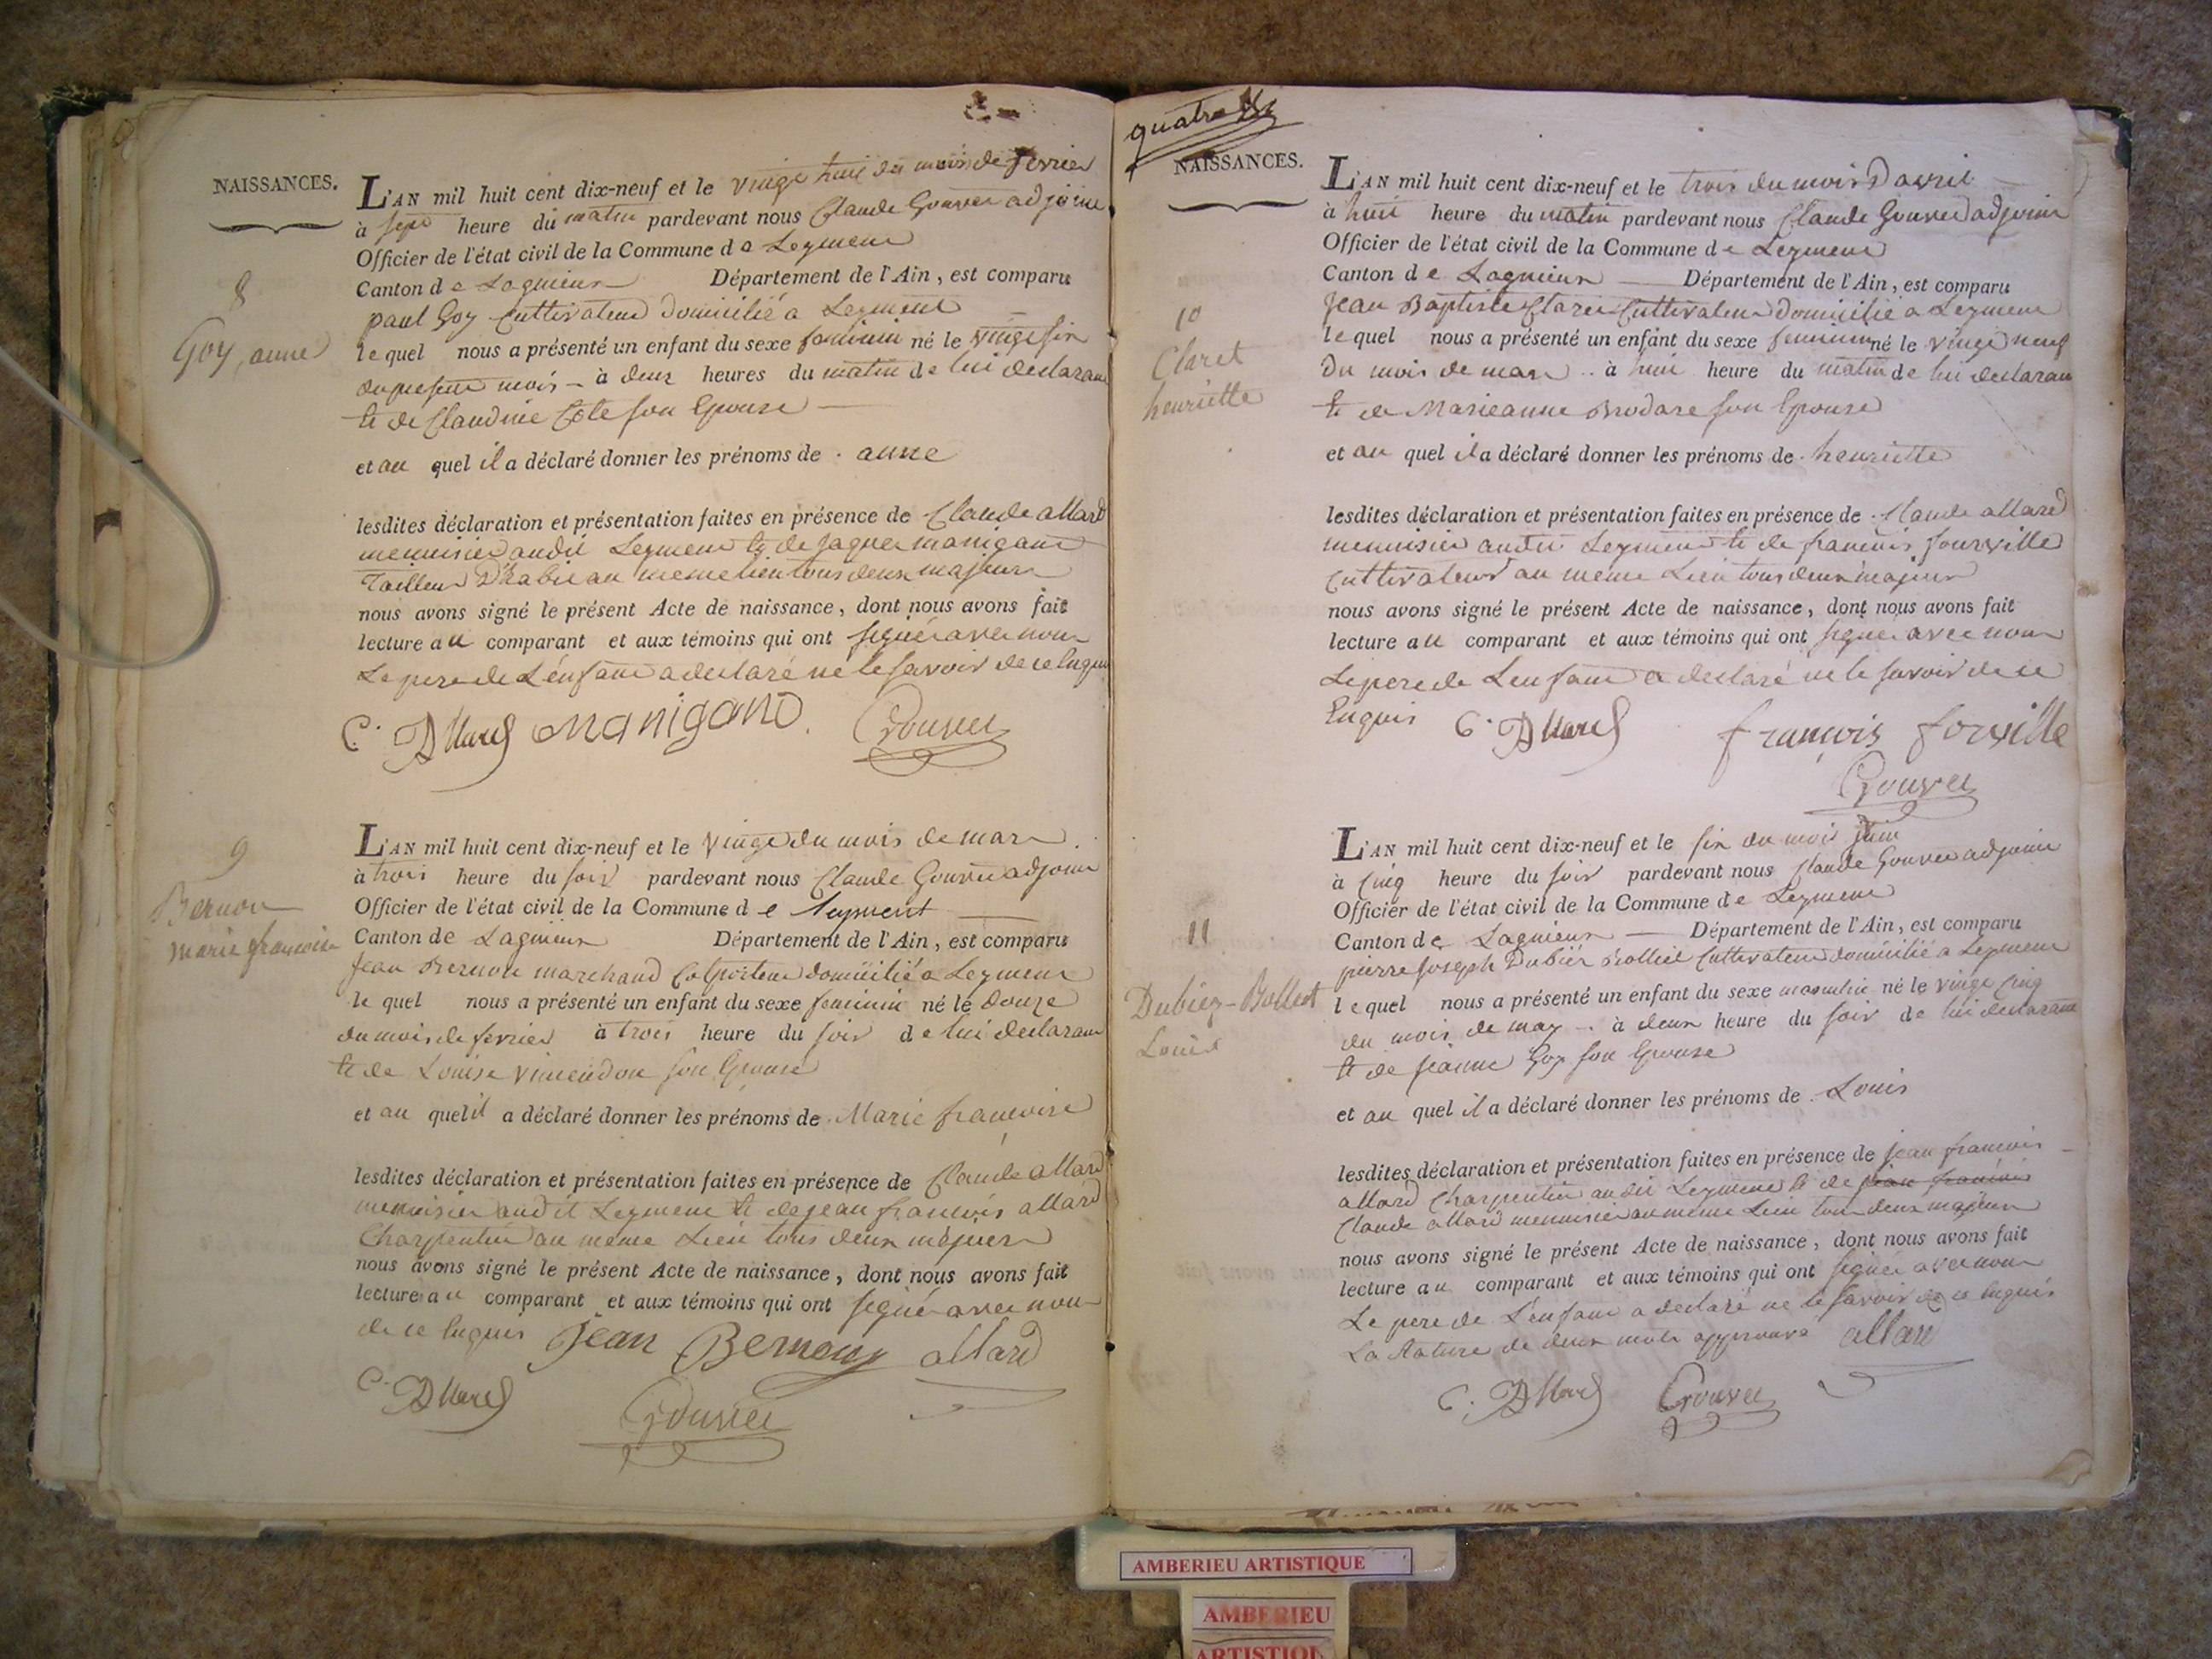 NAISSANCES.
L'AN mil huit cent dix-neuf et le vingt huit du mois de fevrier
à sept heure du matin pardevant nous Claude Gouvee adjoint
Officier de l'état civil de la Commune de Leyment
Canton de Lagnieux Département de l'Ain, est comparu
paul Goy Cultivateur Domicilié a Leyment
lequel nous a présenté un enfant du sexe feminin né le vingt six
du present mois - à deux heures du matin de lui declarant
et de Claudine Cote son Epouse
et au quel il a déclaré donner les prénoms de . anne
lesdites déclaration et présentation faites en présence de Claude allard
menuisier audit Leyment et de Jaques manigand
Tailleur D'habit au meme lieu tous deux majeurs
nous avons signé le présent Acte de naissance, dont nous avons fait
lecture au comparant et aux témoins qui ont signé avec nous
Le pere de L'enfant a declaré ne le savoir de ce Enquis
C. Allard Manigand. Gouvee
8
Goy, anne
L'AN mil huit cent dix-neuf et le vingt du mois de mars
à trois heure du soir pardevant nous Claude Gouvee adjoint
Officier de l'état civil de la Commune de leyment
Canton de Lagnieux Département de l'Ain, est comparu
Jean Bernon marchand Colporteur domicilié a Leyment
le quel nous a présenté un enfant du sexe feminin né le douze
du mois de fevrier à trois heure du soir de lui declarant
et de Louise son Epouse
et au quel il a déclaré donner les prénoms de . Marie francoise
lesdites déclaration et présentation faites en présence de Claude allard
menuisier audit Leyment et de jean francois allard
Charpentier au meme Lieu tous deux majeurs
nous avons signé le présent Acte de naissance, dont nous avons fait
lecture au comparant et aux témoins qui ont signé avec nous
de ce Enquis Jean Bernon allard
C. Allard Gouvee
9
Bernon
marie francoise
quatre
NAISSANCES.
L'AN mil huit cent dix-neuf et le trois du mois D'avril
à huit heure du matin pardevant nous Claude Gouvee adjoint
Officier de l'état civil de la Commune de Leyment
Canton de Lagnieux Département de l'Ain, est comparu
Jean Baptiste Claret Cultivateur Domicilié a Leyment
le quel nous a présenté un enfant du sexe feminin né le vingt neuf
Du mois de mars .. à huit heure du matin de lui declarant
et de Marieanne Brodare son Epouse
et au quel il a déclaré donner les prénoms de . henriette
lesdites déclaration et présentation faites en présence de . Claude allard
menuisier audit Leyment et de francois fourville
Cultivateur au meme Lieu tous deux majeurs
nous avons signé le présent Acte de naissance, dont nous avons fait
lecture au comparant et aux témoins qui ont signé avec nous
Le pere de L'enfant a declaré ne le savoir de ce
Enquis C. Allard françois forville
Gouvee
10
Claret
henriette
L'AN mil huit cent dix-neuf et le six du mois juin
à cinq heure du soir pardevant nous Claude Gouvee adjoint
Officier de l'état civil de la Commune de Leyment
Canton de Lagnieux Département de l'Ain, est comparu
pierre Joseph Dubiez Bolliet Cultivateur domicilié a Leyment
lequel nous a présenté un enfant du sexe masculin né le vingt cinq
du mois de may .. à deux heure du soir de lui declarant
et de jeanne Goy son Epouse
et au quel il a déclaré donner les prénoms de . Louis
lesdites déclaration et présentation faites en présence de jean francois
allard Charpentier audit Leyment et de jean francois
Claude allard menuisier au meme Lieu tous deux majeurs
nous avons signé le présent Acte de naissance, dont nous avons fait
lecture au comparant et aux témoins qui ont signé avec nous
Le pere de L'enfant a declaré ne le savoir de ce Enquis
La Rature de deux mots approuvé allard
C. Allard Gouvee
11
Dubiez-Bolliet
Louis
AMBERIEU ARTISTIQUE
AMBERIEU